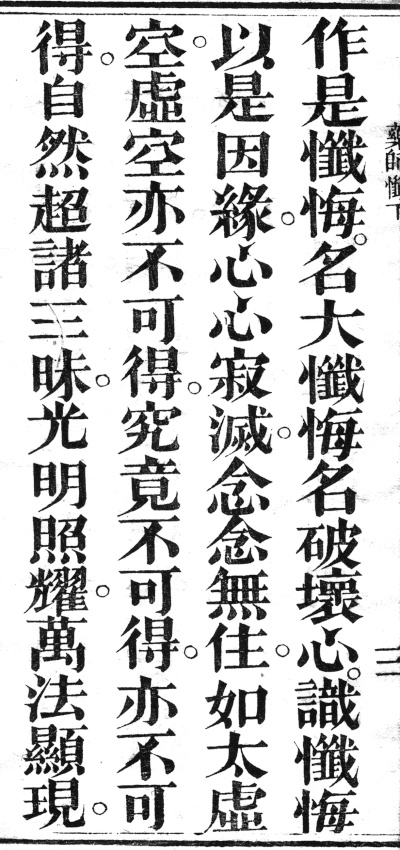 藥師懺下
三
作是懺悔。名大懺悔名破壞心。識懺悔
以是因緣。心心寂滅。念念無住。如太虛
空。虛空亦不可得。究竟不可得。亦不可
得。自然超諸三昧。光明照耀。萬法顯現。